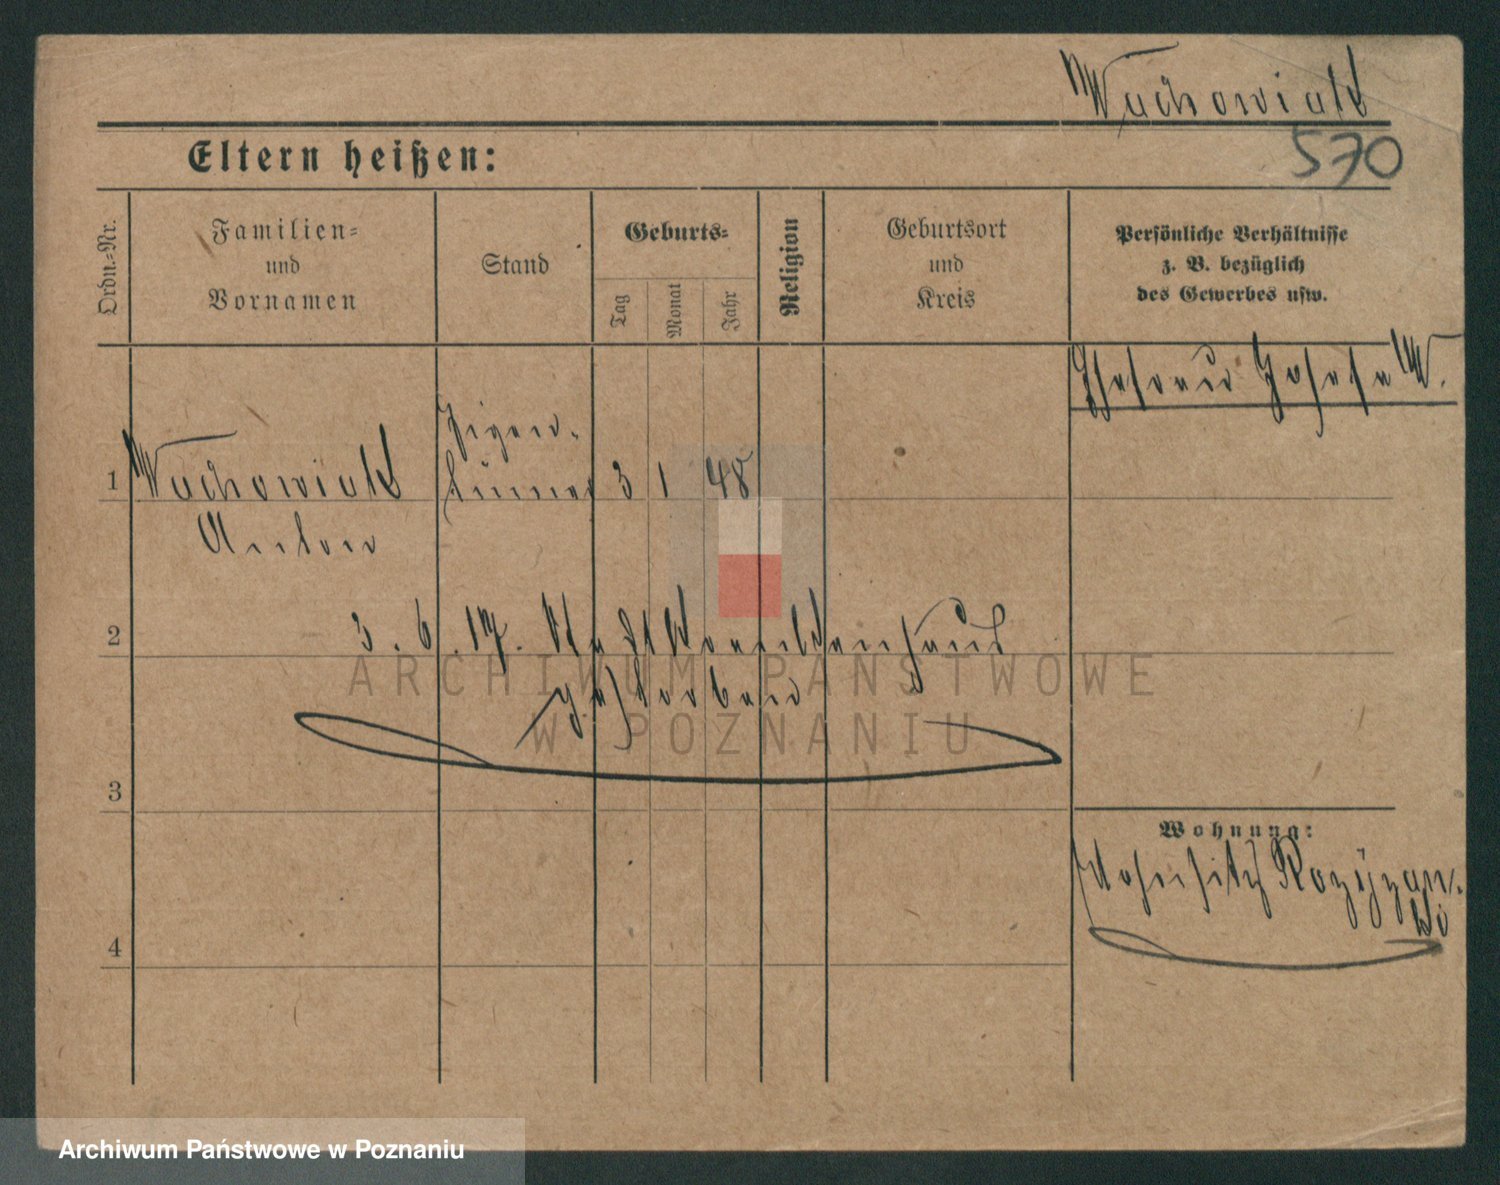 Wachowiak
570
Eltern heißen:
Ordn.-Nr.
Familien-
und
Vornamen
Stand
Geburts-
Tag
Monat
Jahr
Religion
Geburtsort
und
Kreis
Persönliche Verhältnisse
z. B. bezüglich
des Gewerbes usw.
Ehefrau Josefa W.
1
Wachowiak
Anton
Eigen-
tümer
3 1 48
2
3. 6. 17. Stadtkrankenhaus
gestorben
3
4
Wohnung:
Wohnsitz
ARCHIWUM PAŃSTWOWE
W POZNANIU
Archiwum Państwowe w Poznaniu